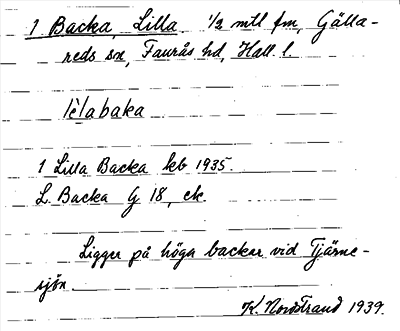 1 Backa, Lilla. 1/2 mtl fm, Gälla-
reds sn, Faurås hd, Hall. l.
lèlabaka
1 Lilla Backa kb 1935.
L. Backa G 18, ek.
Ligger på höga backar vid Tjärne-
sjön.
K. Nordstrand 1939.